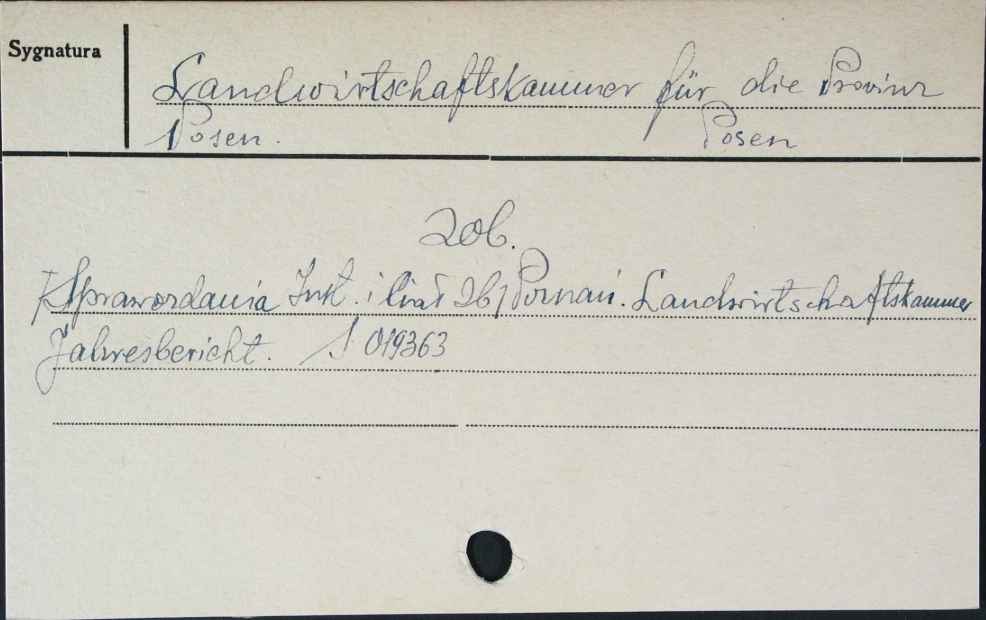 Sygnatura
Landwirtschaftskammer für die Provinz
Posen. Posen
zob.
Sprawozdania Inst. i 26) Poznań. Landwirtschaftskammer
Jahresbericht. S 019363